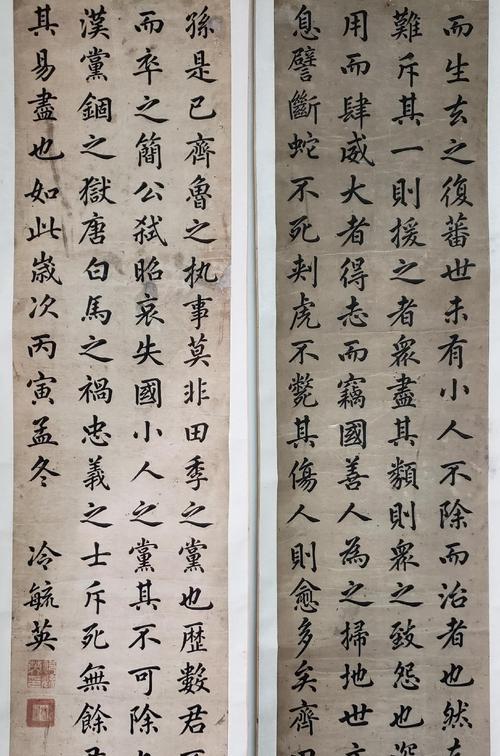 而生去之復蕃世未有小人不除而治者也然
難斥其一則援之者眾盡其類則眾之致怨也
用而肆威大者得志而竊國善人為之掃地世
息譬斷蛇不死刺虎不斃其傷人則愈多矣齊
孫是已齊魯之执事莫非田季之黨也歷數君
而卒之簡公弒昭哀失國小人之黨其不可除
漢黨錮之獄唐白馬之禍忠義之士斥死無餘
其易盡也如此歲次丙寅孟冬
冷毓英